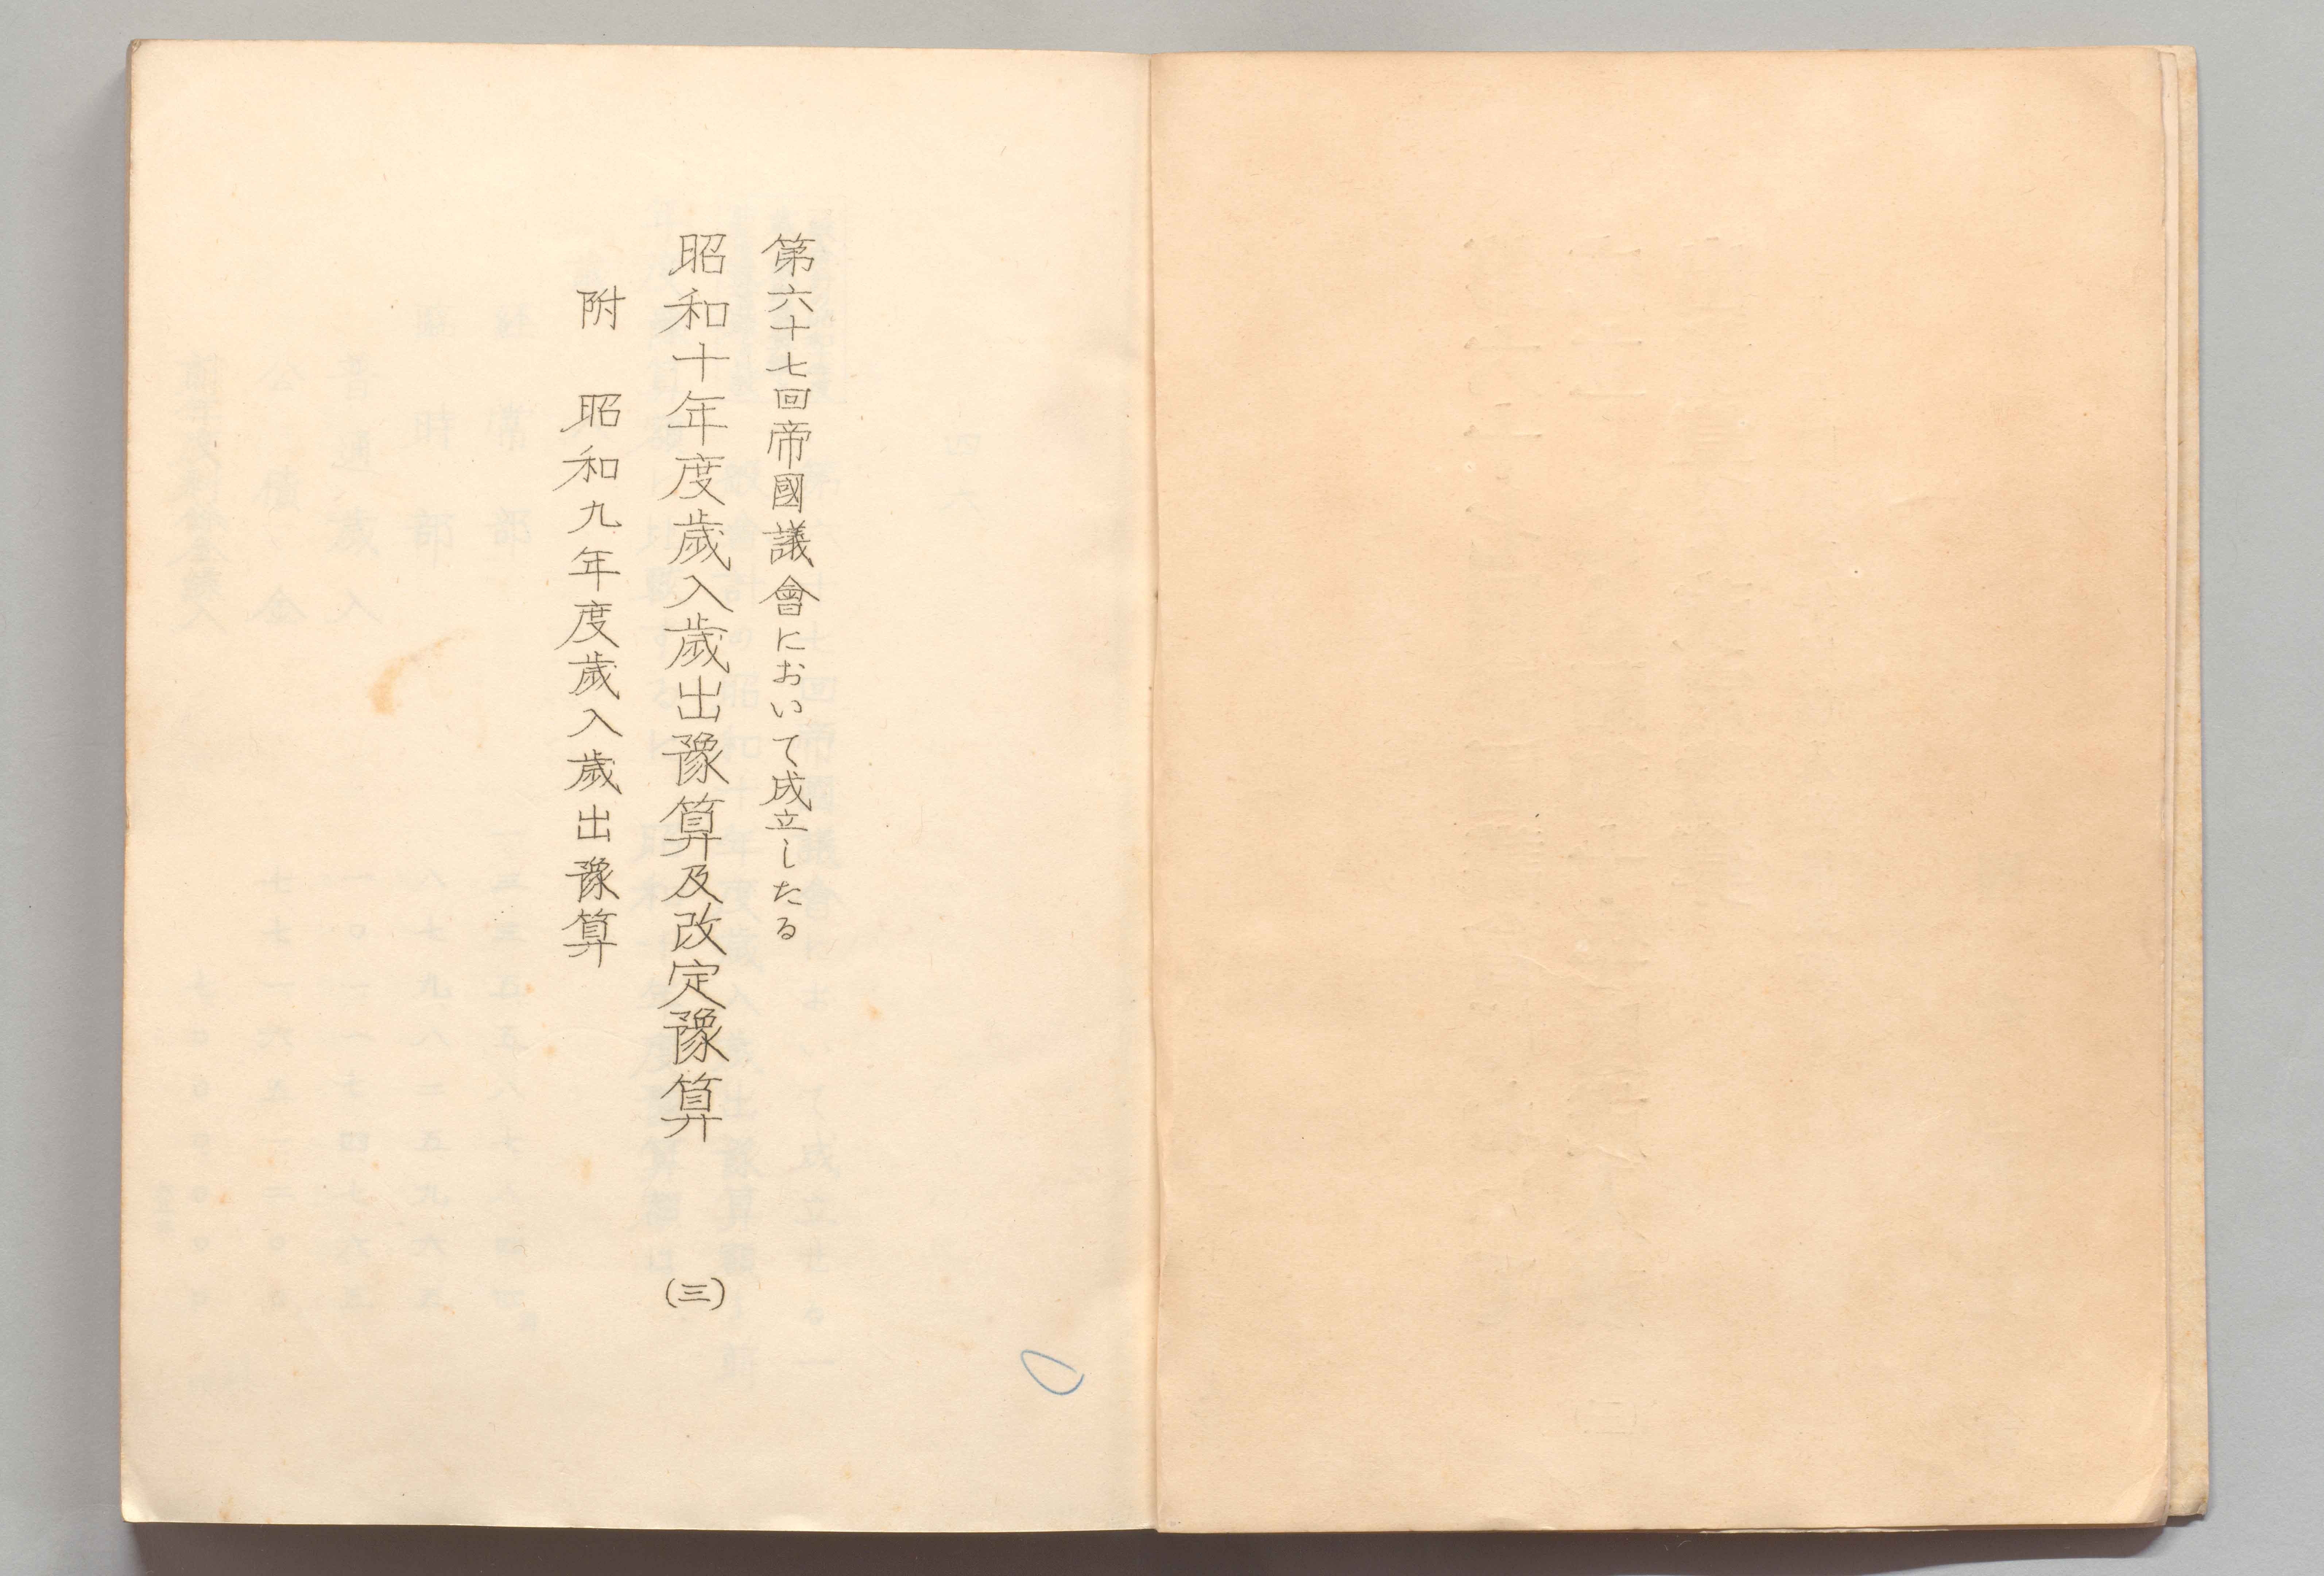 第六十七回帝國議會において成立したる
昭和十年度歲入歲出豫算及改定豫算 (三)
附 昭和九年度歲入歲出豫算